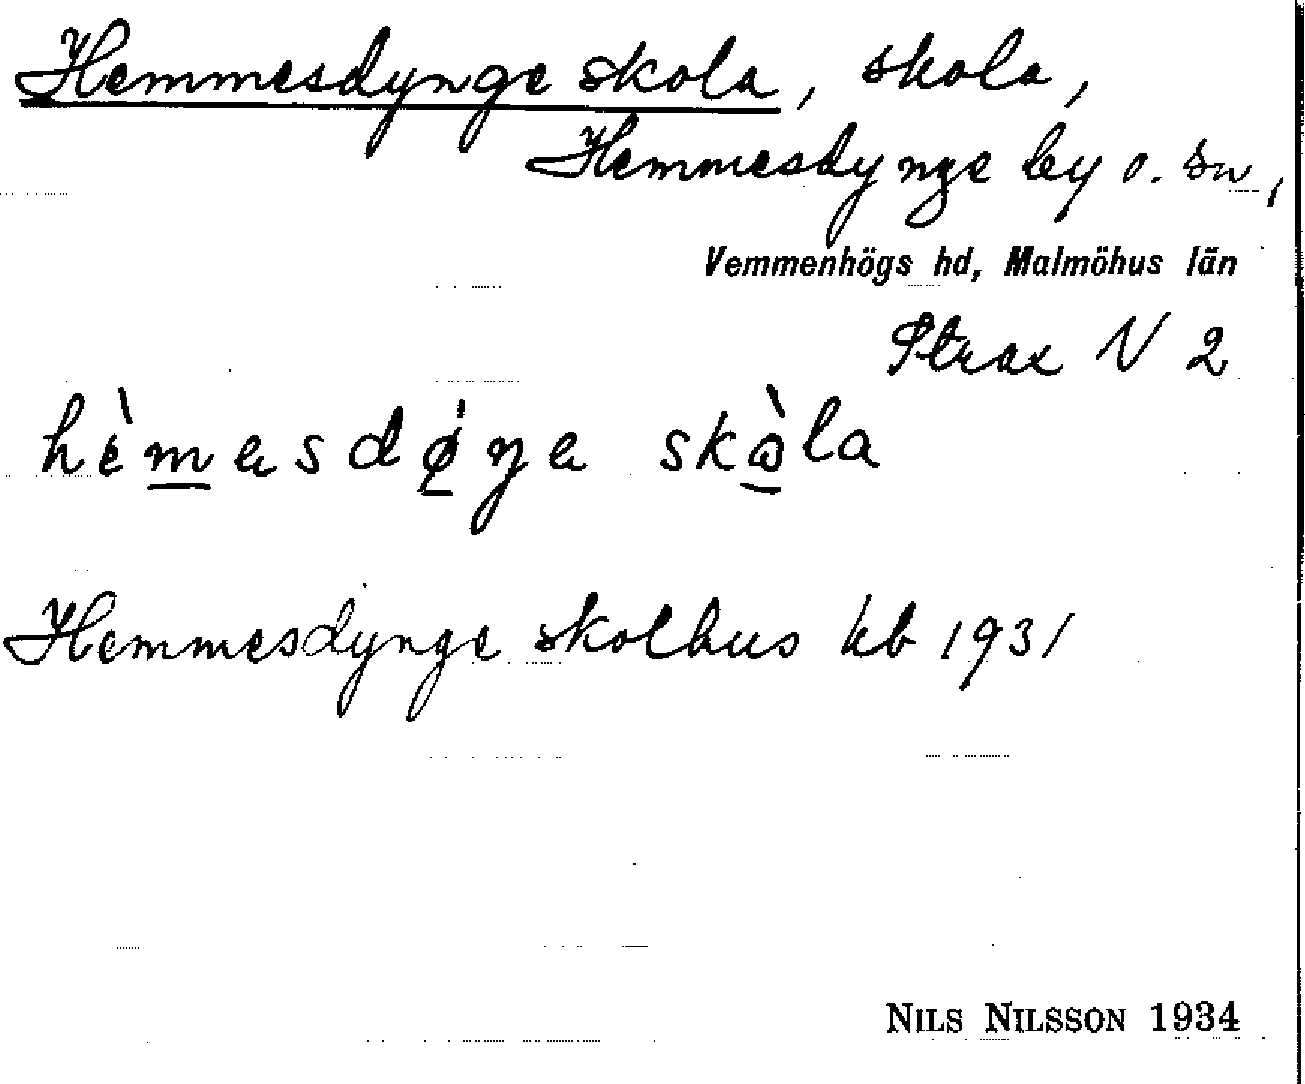 Hemmesdynge skola, skola,
Hemmesdynge by o. sn,
Vemmenhögs hd, Malmöhus län
Strax N 2
hèmasdøŋa skòla
Hemmesdynge skolhus kb 1931
NILS NILSSON 1934